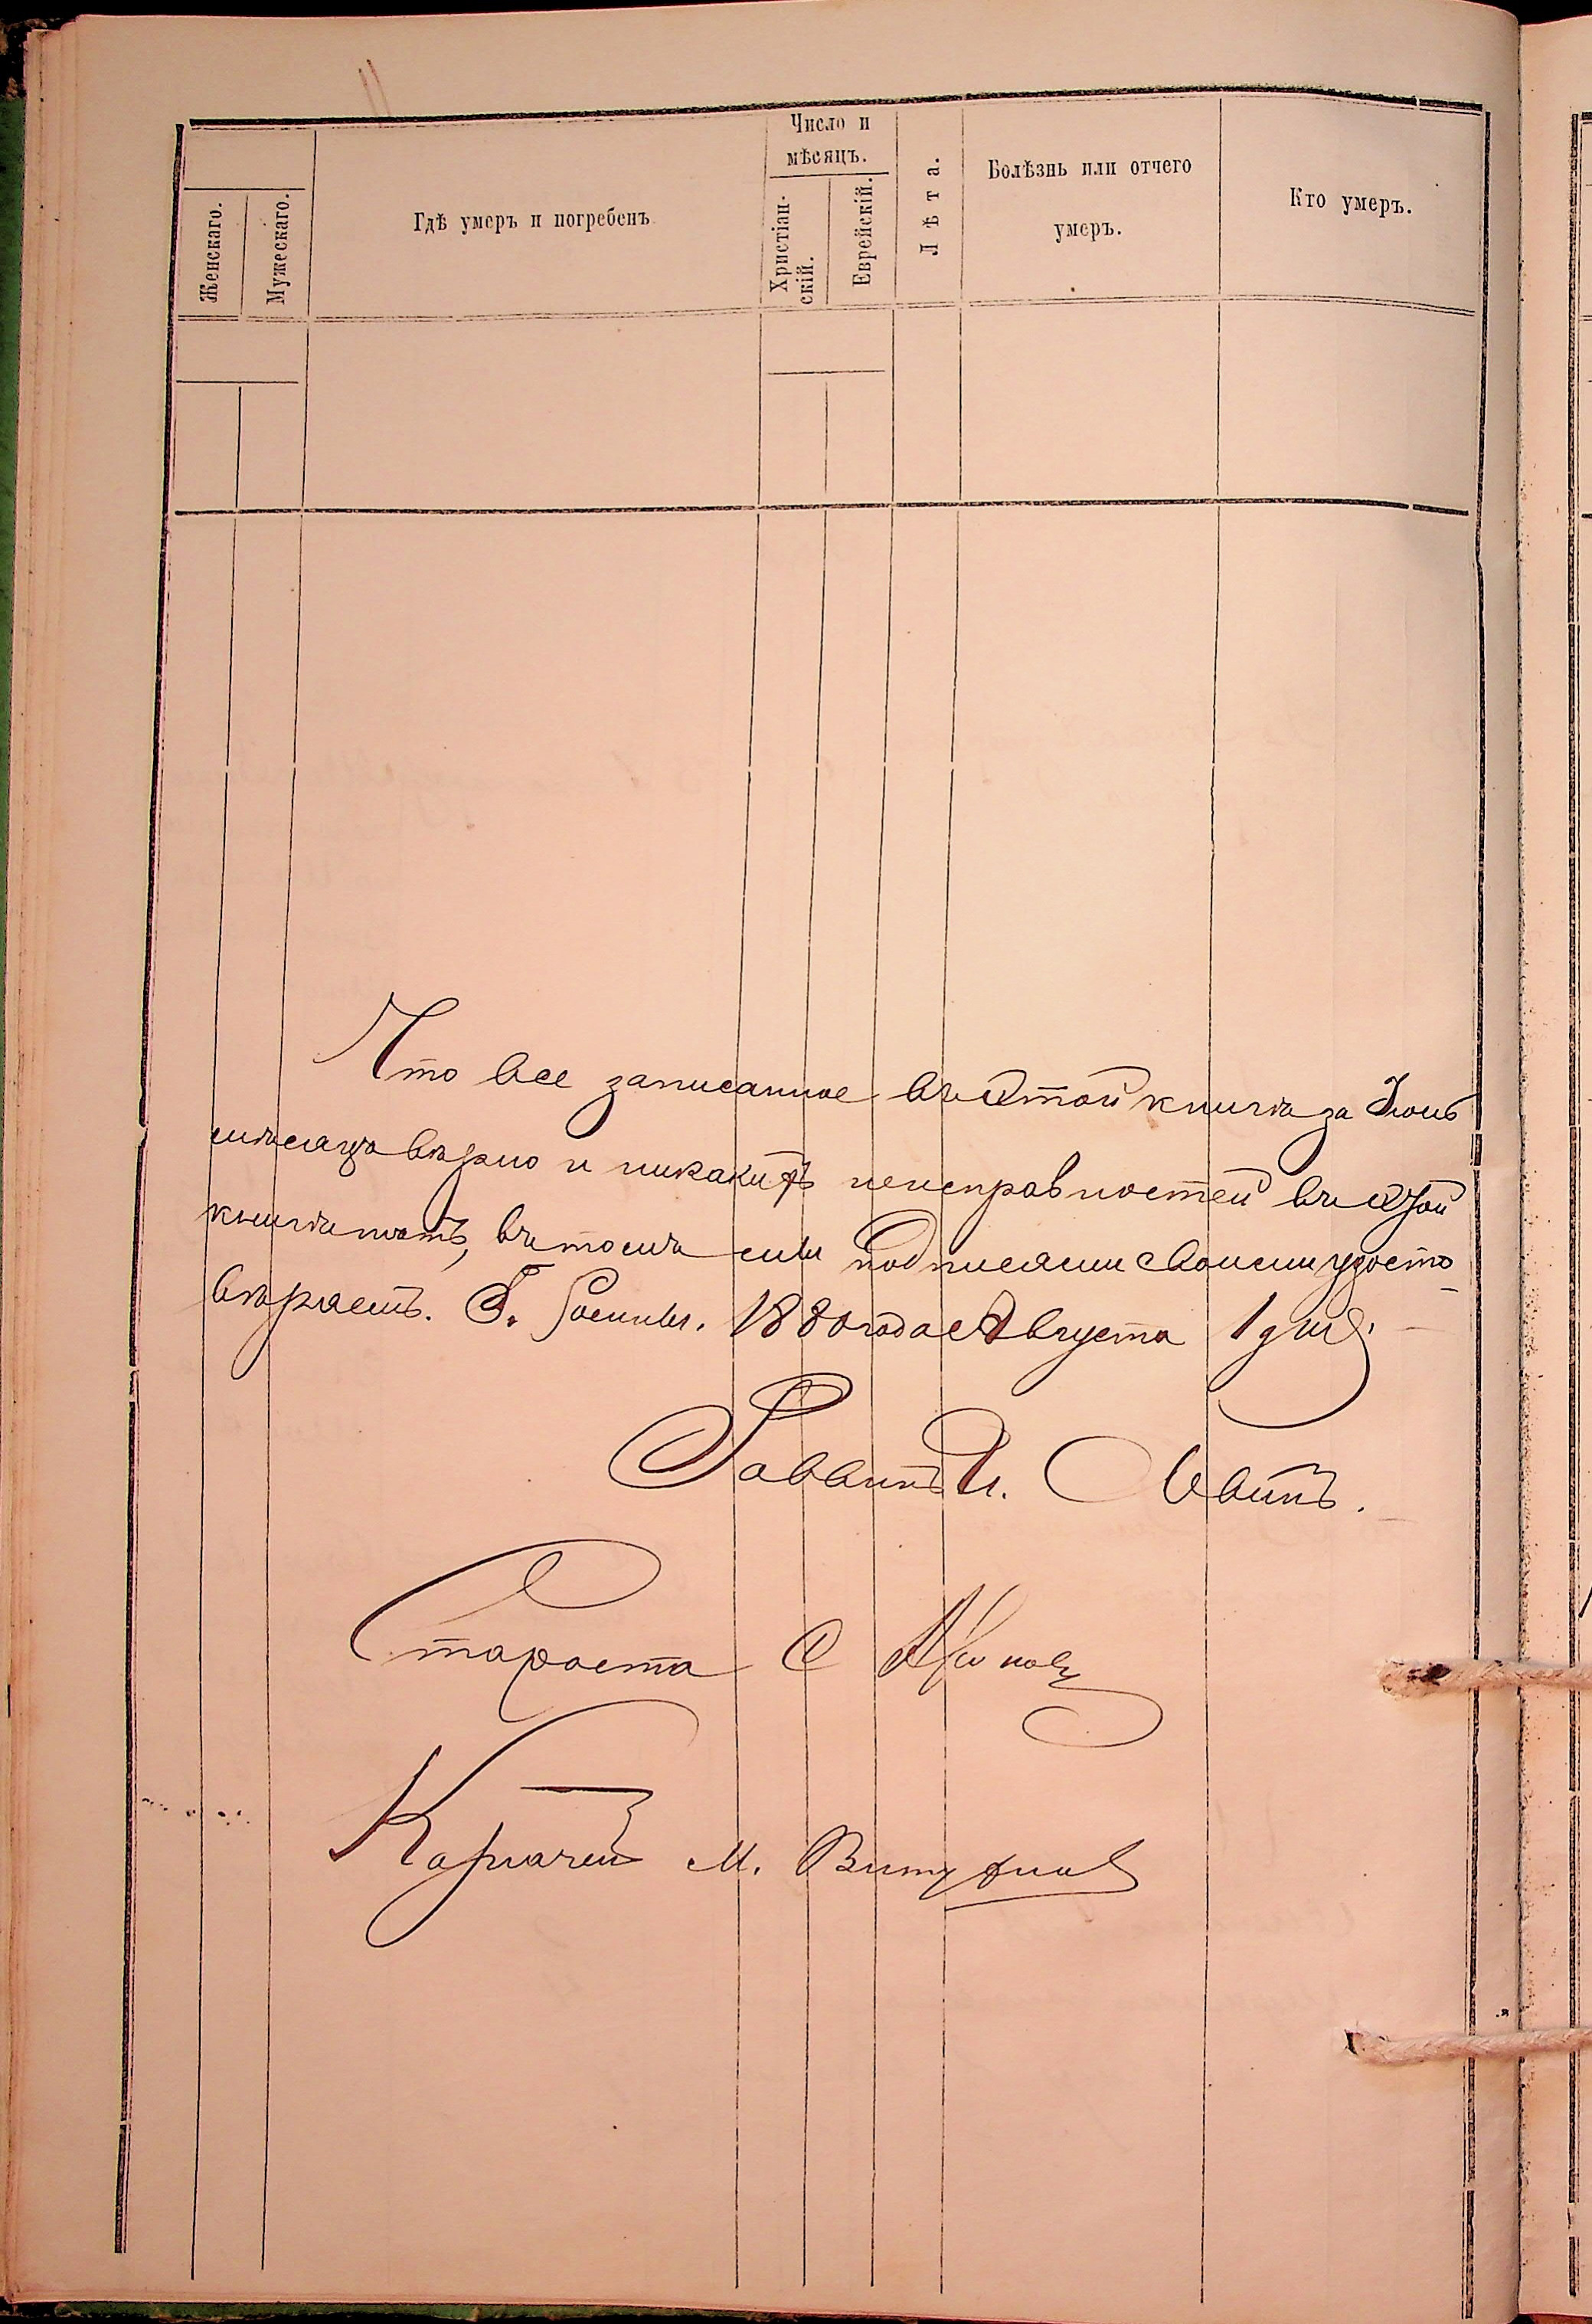 Женскаго.
Мужескаго.
Гдѣ умеръ и погребенъ
Число и
мѣсяцъ.
Христіан-
скій.
Еврейскій.
Лѣта.
Болѣзнь или отчего
умеръ.
Кто умеръ.
Что все записанное въ этой книгѣ за Іюль
мѣсяцъ вѣрно и никакихъ неисправностей въ этой
книгѣ нѣтъ, въ томъ мы подписями своими удосто-
вѣряемъ. Г. 1880 года Августа 1 дня.
Раввинъ И.
Староста С
Казначей М.